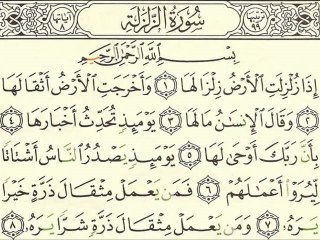 ترتيبها ٩٩ سُورَةُ الزَّلْزَلَةِ آياتها ٨
بِسْمِ ٱللَّهِ ٱلرَّحْمَٰنِ ٱلرَّحِيمِ
إِذَا زُلْزِلَتِ ٱلْأَرْضُ زِلْزَالَهَا ١ وَأَخْرَجَتِ ٱلْأَرْضُ أَثْقَالَهَا
٢ وَقَالَ ٱلْإِنسَٰنُ مَا لَهَا ٣ يَوْمَئِذٍ تُحَدِّثُ أَخْبَارَهَا ٤
بِأَنَّ رَبَّكَ أَوْحَىٰ لَهَا ٥ يَوْمَئِذٍ يَصْدُرُ ٱلنَّاسُ أَشْتَاتًا
لِّيُرَوْا۟ أَعْمَٰلَهُمْ ٦ فَمَن يَعْمَلْ مِثْقَالَ ذَرَّةٍ خَيْرًا
يَرَهُۥ ٧ وَمَن يَعْمَلْ مِثْقَالَ ذَرَّةٍ شَرًّا يَرَهُۥ ٨